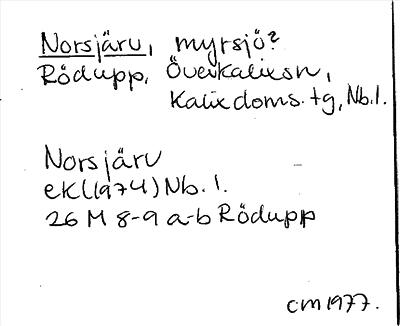 Norsjärv, myrsjö?
Rödupp, Överkalixsn,
Kalix doms. tg, Nb.l.
Norsjärv
ek(1974) Nb. l.
26 M 8-9 a-b Rödupp
cm 1977.